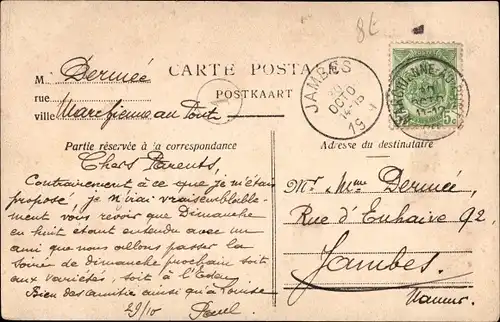 8E
M. Dermée
CARTE POSTALE
rue
POSTKAART
ville Marchienne au Pont
JAMBES
OCTO
14-15
19
MARCHIENNE-AU-PONT
OCTO
Partie réservée à la correspondance
Adresse du destinataire
Chers Parents,
Contrairement à ce que je m'étais
proposé, je n'irai vraisemblable-
ment vous revoir que Dimanche
en huit étant entendu avec un
ami que nous allons passer la
soirée de dimanche prochain soit
aux variétés, soit à l'Eden
Bien des amitiés ainsi qu'a Louise
29/10 Paul
Mr. Mme Dermée,
Rue d'Enhaive 92
Jambes.
Namur.